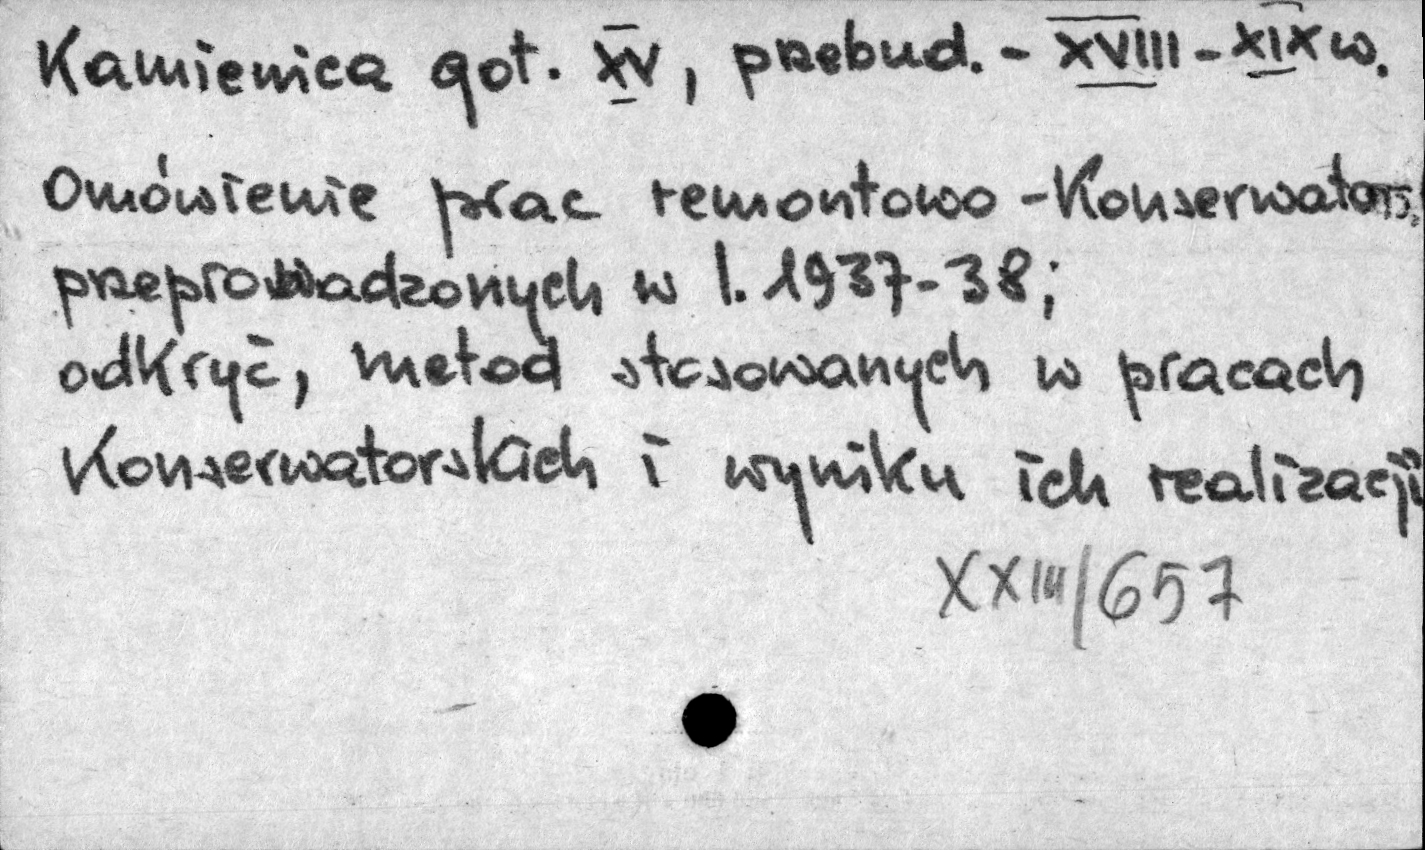 Kamienica got. XV, przebud. - XVIII - XIX w.
Omówienie prac remontowo - Konserwators,
przeprowadzonych w l. 1937-38;
odkryć, metod stosowanych w pracach
Konserwatorskich i wyniku ich realizacji
XXIII/657